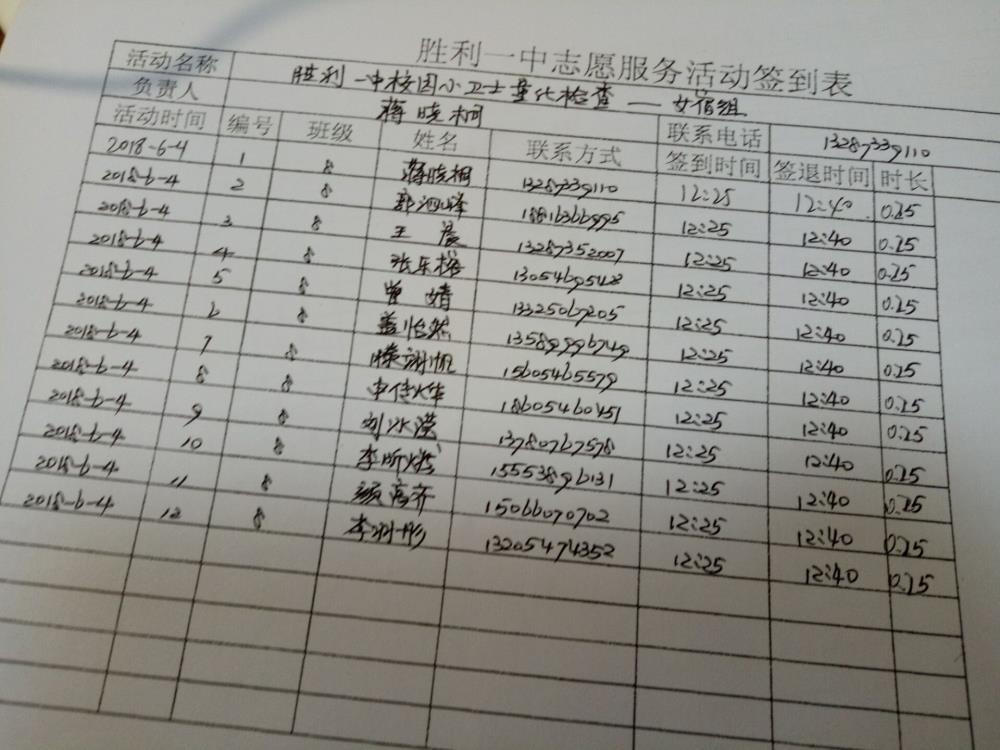 胜利一中志愿服务活动签到表
活动名称 胜利一中校园小卫士量化检查——女宿组
负责人 蒋晓桐 联系电话 13287339110
活动时间 编号 班级 姓名 联系方式 签到时间 签退时间 时长
2018-6-4 1 8 蒋晓桐 13287339110 12:25 12:40 0.25
2018-6-4 2 8 18816366995 12:25 12:40 0.25
2018-6-4 3 8 王晨 13287352007 12:25 12:40 0.25
2018-6-4 4 8 张乐榕 13054695428 12:25 12:40 0.25
2018-6-4 5 8 曾婧 13325067205 12:25 12:40 0.25
2018-6-4 6 8 盖怡然 13589996749 12:25 12:40 0.25
2018-6-4 7 8 滕翊帆 15605465579 12:25 12:40 0.25
2018-6-4 8 8 申佳烨 18605460451 12:25 12:40 0.25
2018-6-4 9 8 刘冰滢 13780767578 12:25 12:40 0.25
2018-6-4 10 8 李昕 15553896131 12:25 12:40 0.25
2018-6-4 11 8 顾高齐 15066070702 12:25 12:40 0.25
2018-6-4 12 8 李羽彤 13205474352 12:25 12:40 0.25